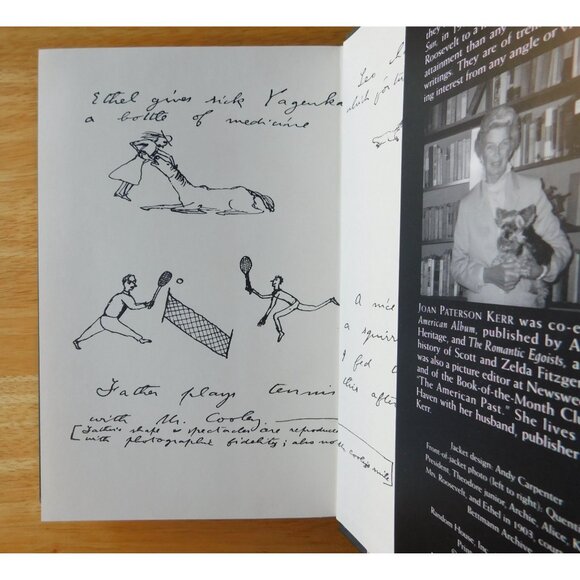 Ethel gives sick Yagenka
a bottle of medicine
Father plays tennis
with Mr. Cooley.
[Father's shape & spectacles are reproduced
with photographic fidelity; also no
cooley's smile]
Leo
which for
A nice
a squirr
I fed
this after
they
Sur, in 19
Roosevelt to a
attainment than any
writings. They are of trem
ing interest from any angle or vi
JOAN PATERSON KERR was co-e
American Album, published by A
Heritage, and The Romantic Egoists, a
history of Scott and Zelda Fitzger
was also a picture editor at Newswe
and of the Book-of-the-Month Clu
"The American Past." She lives
Haven with her husband, publisher
Kerr.
Jacket design: Andy Carpenter
Front-of-jacket photo (left to right): Quentin
President, Theodore junior, Archie, Alice, K
Mrs. Roosevelt, and Ethel in 1903, cour
Bettmann Archive
Random House, Inc.